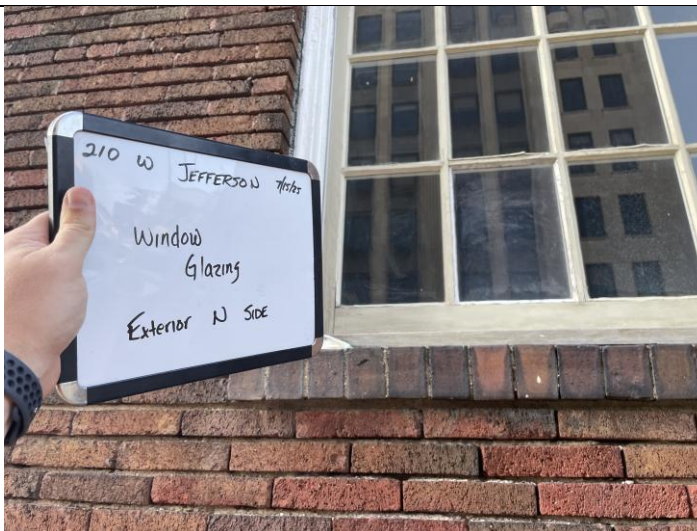 210 W JEFFERSON 7/15/25
Window
Glazing
Exterior N SIDE